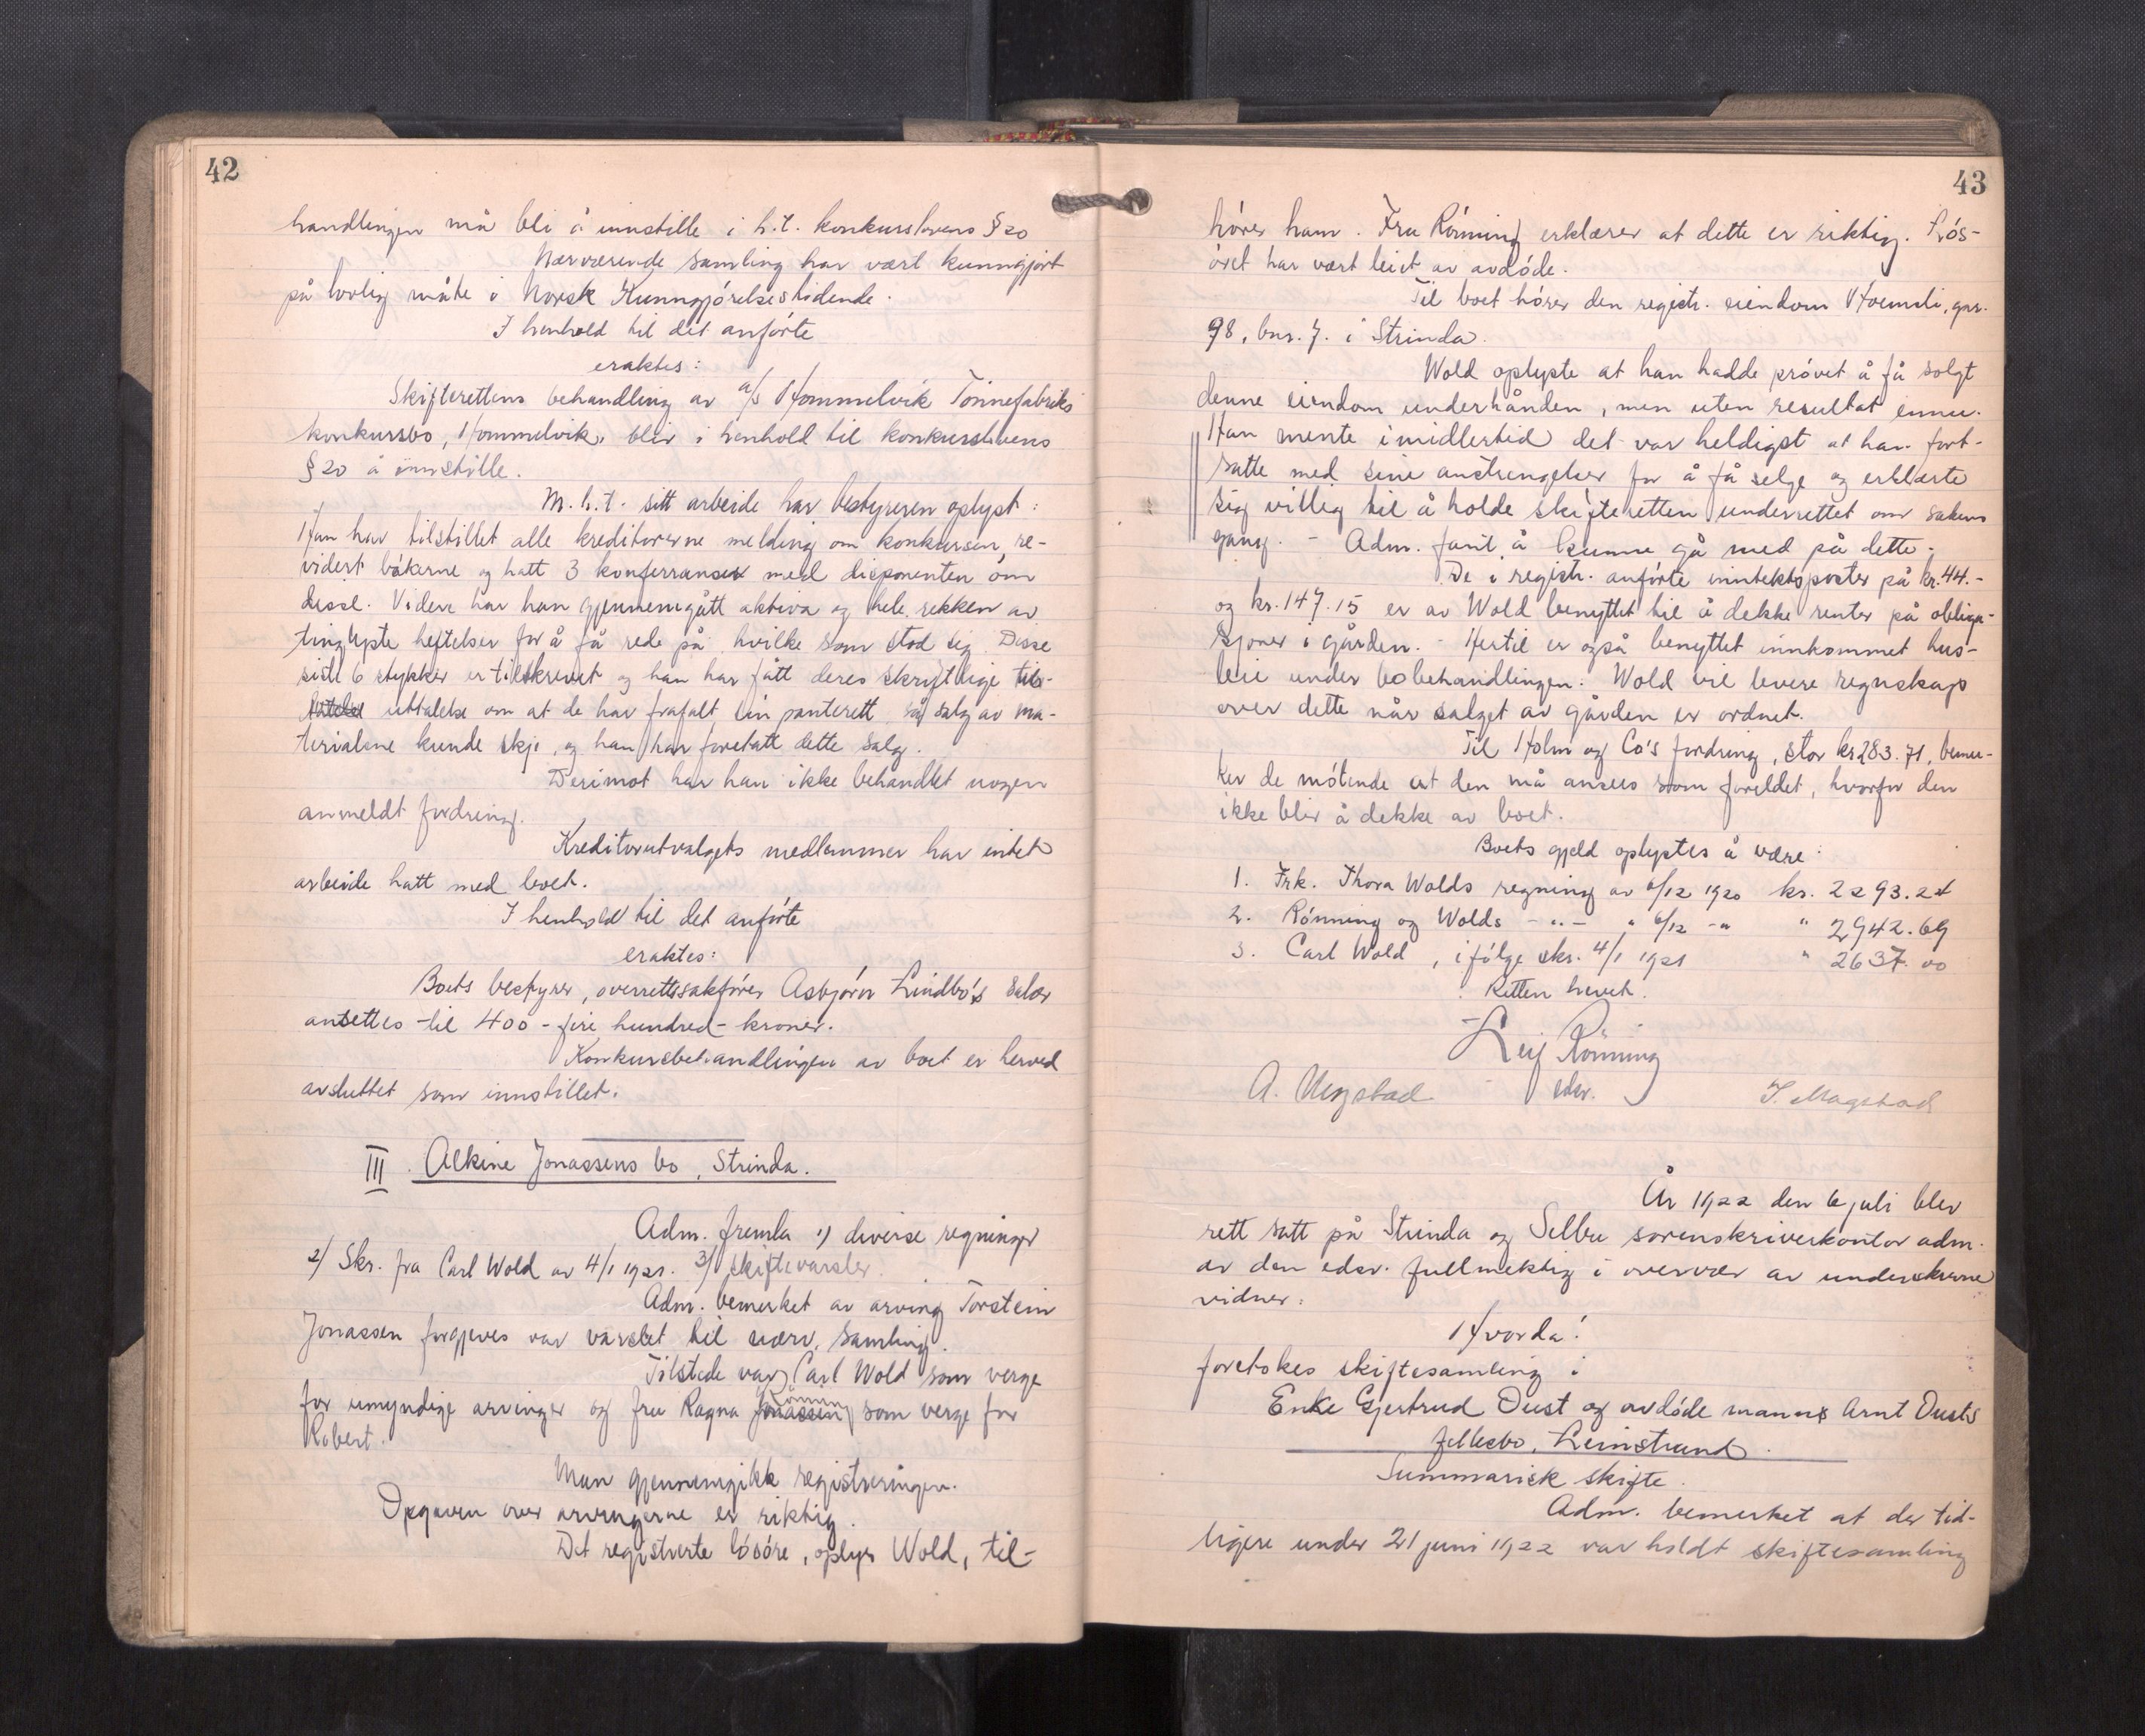 42
handlingen må bli å innstille i h.t. konkurslovens § 20
Nærværende samling har vært kunngjort
på lovlig måte i Norsk Kunngjørelsestidende.
I henhold til det anførte
eraktes:
Skifterettens behandling av a/s Hommelvik Tønnefabriks
konkursbo, Hommelvik, blir i henhold til konkurslovens
§ 20 å innstille.
M.h.t. sitt arbeide har bestyreren oplyst:
Han har tilstillet alle kreditorerne melding om konkursen, re-
vidert bøkerne og hatt 3 konferranser med disponenten om
disse. Videre har han gjennemgått aktiva og hele rekken av
tinglyste heftelser for å få rede på hvilke som stod sig. Disse
siste 6 stykker er tilskrevet og han har fått deres skriftlige
uttalelse om at de har frafalt sin panterett så salg av ma-
terialene kunde skje, og han har foretatt dette salg.
Derimot har han ikke behandlet nogen
anmeldt fordring.
Kreditorutvalgets medlemmer har intet
arbeide hatt med boet.
I henhold til det anførte
eraktes:
Boets bestyrer, overrettssakfører Asbjørn Lindbo's salær
ansettes til 400 - fire hundred - kroner.
Konkursbehandlingen av boet er herved
avsluttet som innstillet.
III. Alkine Jonassens bo, Strinda.
Adm. fremla 1) diverse regninger
2) Skr. fra Carl Wold av 4/1 1921. 3) skiftevarsler.
Adm. bemerket av arving Torstein
Jonassen forgjeves var varslet til nærv. samling.
Tilstede var Carl Wold som verge
for umyndige arvinger og fru Ragna Jonassen Rønning som verge for
Robert.
Man gjennemgikk registreringen.
Opgaven over arvingerne er riktig.
Det registrerte løsøre, oplyser Wold, til-
43
hører ham. Fru Rønning erklærer at dette er riktig. Løs-
øret har vært leiet av avdøde.
Til boet hører den registr. eiendom Hoemsli, gnr.
98, bnr. 7. i Strinda.
Wold oplyste at han hadde prøvet å få solgt
denne eiendom underhånden, men uten resultat ennu.
Han mente imidlertid det var heldigst at han fort-
satte med sine anstrengelser for å få selge og erklærte
sig villig til å holde skifteretten underrettet om sakens
gang. - Adm. fant å kunne gå med på dette.
De i registr. anførte inntektsposter på kr. 44.-
og kr. 147.15 er av Wold benyttet til å dekke renter på obliga-
sjoner i gården. - Hertil er også benyttet innkommet hus-
leie under bobehandlingen. Wold vil levere regnskap
over dette når salget av gården er ordnet.
Til Holm og Co's fordring, stor kr 283.71, bemer-
ker de møtende at den må ansees som foreldet, hvorfor den
ikke blir å dekke av boet.
Boets gjeld oplystes å være:
1. Frk. Thora Wolds regning av 6/12 1920 kr. 2293.24
2. Rønning og Wolds - " - " 6/12 - " " 2942.69
3. Carl Wold, ifølge skr. 4/1 1921 " 2637.00
Retten hevet.
Leif Rønning
edsv.
A. Uegstad J. Magstad
År 1922 den 6 juli blev
rett satt på Strinda og Selbu sorenskriverkontor adm.
av den edsv. fullmektig i overvær av underskrevne
vidner.
Hvorda!
foretokes skiftesamling i
Enke Gjertrud Dust og avdøde manns Arnt Dusts
fellesbo, Leinstrand.
Summarisk skifte.
Adm. bemerket at der tid-
ligere under 21 juni 1922 var holdt skiftesamling